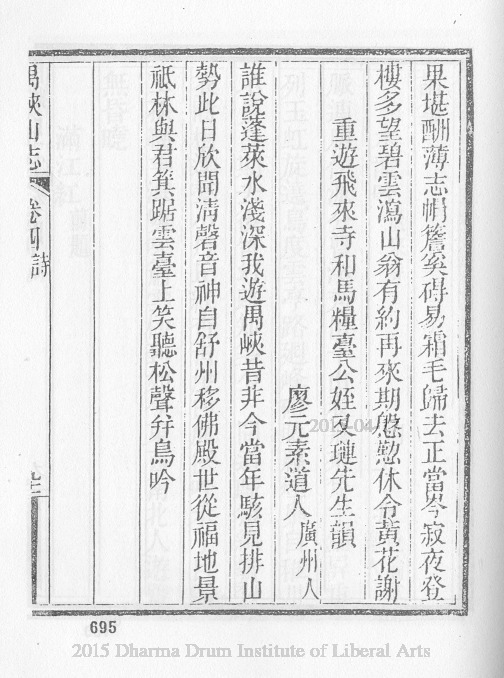 果堪酬薄志帽簷矣碍易霜毛歸去正當今寂夜登
樓多望碧雲瀉山翁有約再來期慇懃休令黃花謝
重遊飛來寺和馬糧臺公姪又璉先生韻
廖元素道人 廣州人
誰說蓬萊水淺深我遊禺峽昔非今當年駭見排山
勢此日欣聞清磬音神自舒州移佛殿世從福地景
祇林與君箕踞雲臺上笑聽松聲弁鳥吟
禺峽山志 卷四 詩
695
2015 Dharma Drum Institute of Liberal Arts